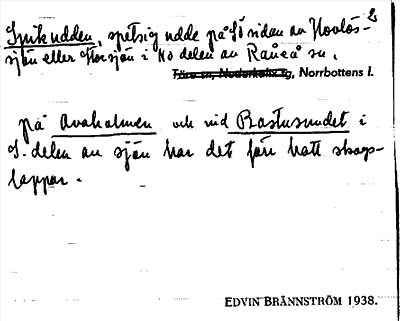 2
Snikudden, spetsig udde på Sö sidan av Hovlös-
sjön eller Storsjön i No delen av Råneå sn.
Töre sn, Nederkalix tg, Norrbottens l.
på Avaholmen och vid Bastusundet i
S. delen av sjön har det förr hatt skogs-
lappar.
EDVIN BRÄNNSTRÖM 1938.